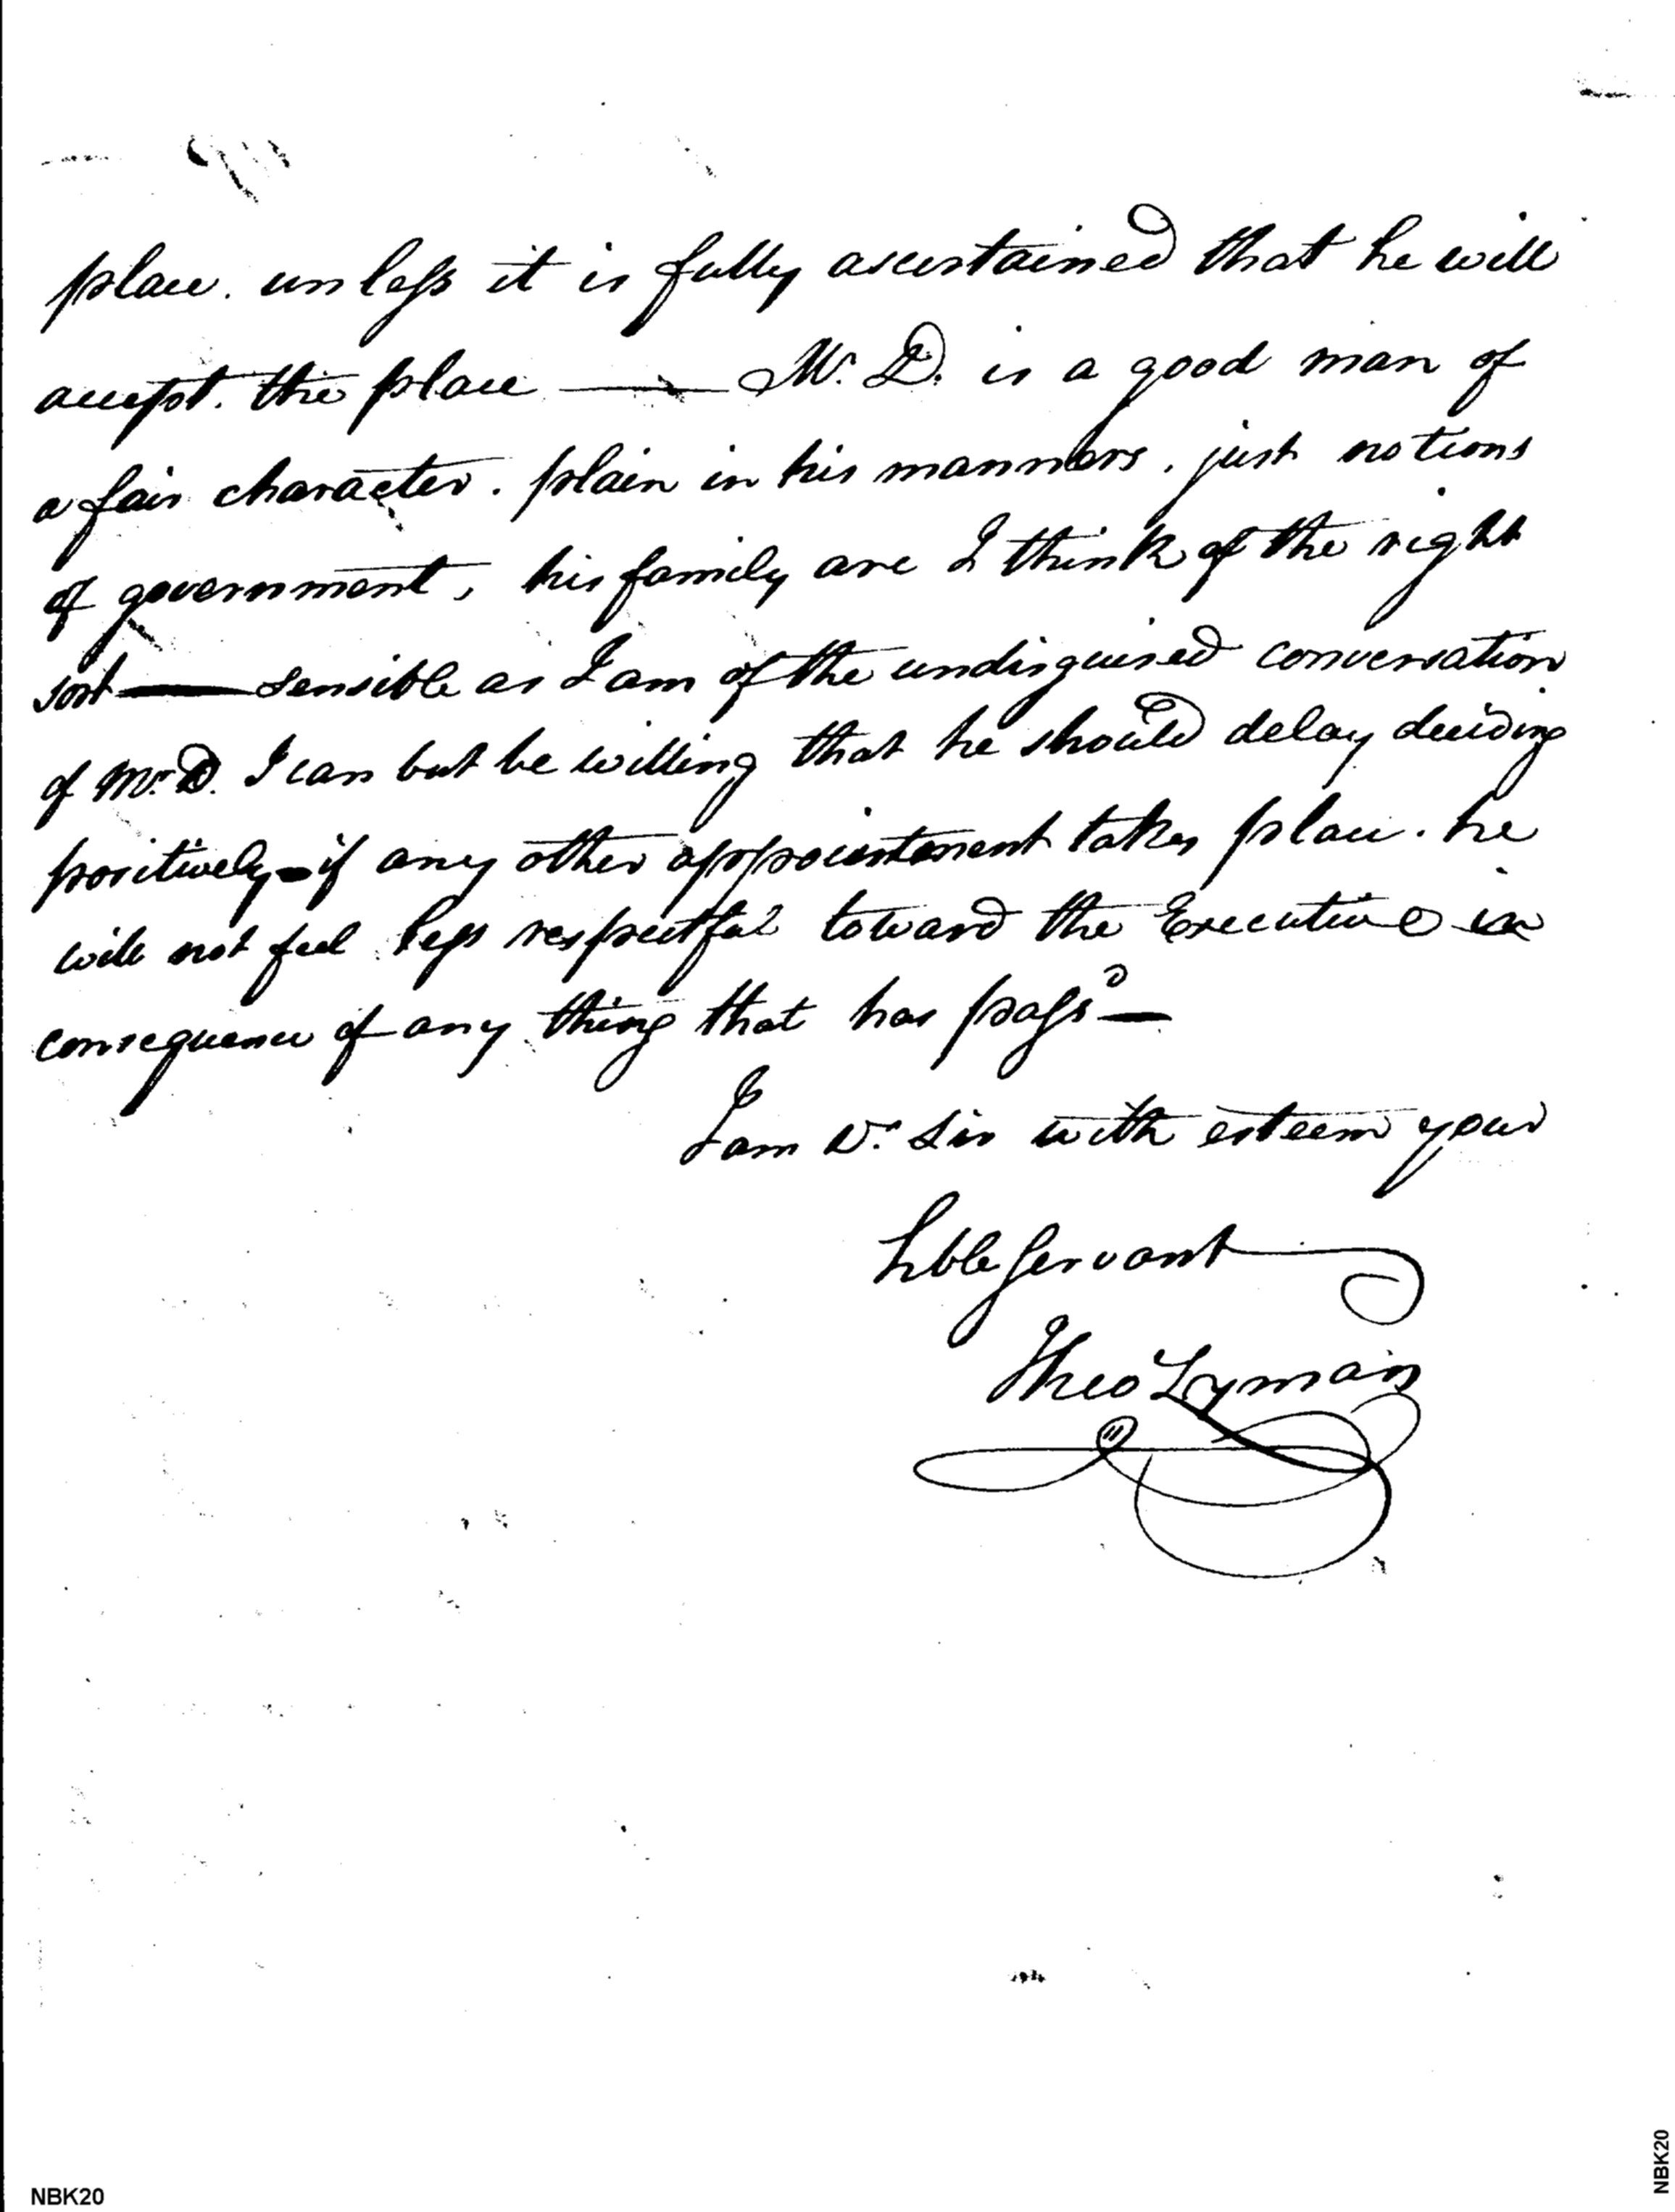 place. unless it is fully ascertained that he will
accept. the place — Mr. D. is a good man of
a fair character. plain in his manners, just notions
of government, his family are I think of the right
sort — sensible as I am of the undisguised conversation
of Mr. D. I can but be willing that he should delay deciding
positively – if any other appointment takes place. he
will not feel less respectful toward the Executive in
consequence of any thing that has passd —
I am Dr. Sir with esteem your
hble Servant
Theo Lyman
NBK20
NBK20